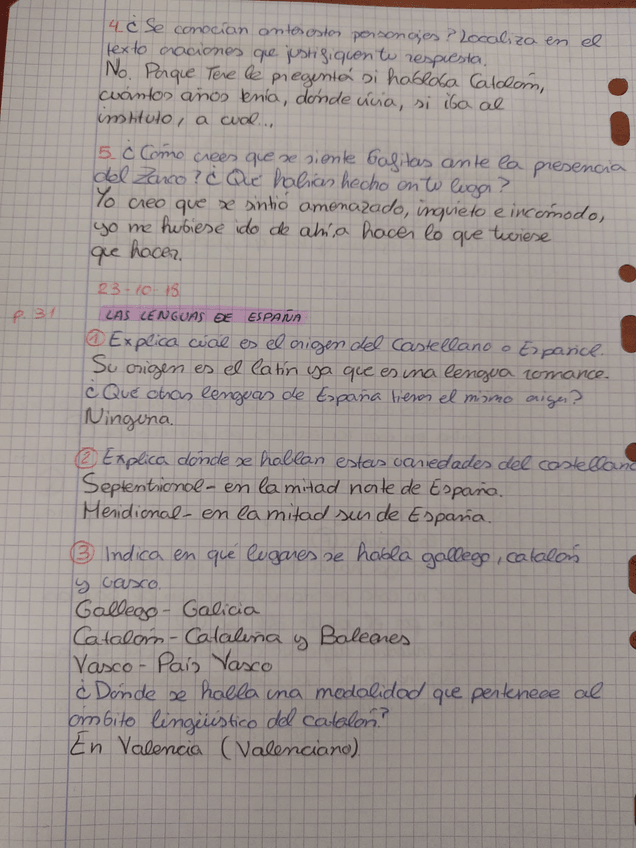 4. ¿Se conocían antes estos personajes? Localiza en el
texto oraciones que justifiquen tu respuesta.
No. Porque Tere le pregenta si hablaba Catalán,
cuántos años tenía, dónde vivía, si iba al
instituto, a cual...
5. ¿Cómo crees que se siente Gafitas ante la presencia
del Zarco? ¿Qué habías hecho en tu lugar?
Yo creo que se sintió amenazado, inquieto e incómodo,
yo me hubiese ido de ahí a hacer lo que tuviese
que hacer.
23-10-18
p. 31 LAS LENGUAS DE ESPAÑA
1 Explica cual es el origen del Castellano o Español.
Su origen es el latín ya que es una lengua romance.
¿Qué otras lenguas de España tienen el mismo origen?
Ninguna.
2 Explica dónde se hallan estas variedades del castellano
Septentrional - en la mitad norte de España.
Meridional - en la mitad sur de España.
3 Indica en qué lugares se habla gallego, catalán
y vasco.
Gallego - Galicia
Catalán - Cataluña y Baleares
Vasco - País Vasco
¿Dónde se halla una modalidad que pertenece al
ámbito lingüístico del catalán?
En Valencia (Valenciano)